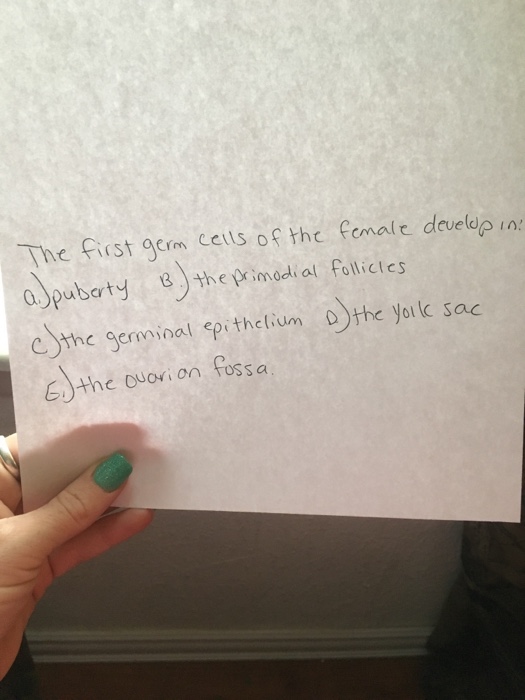 The first germ cells of the female develop in:
a.) puberty B.) the primodial follicles
c.) the germinal epithelium D.) the yolk sac
E.) the ovarian fossa.